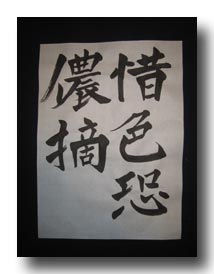 惜色恐
儂摘